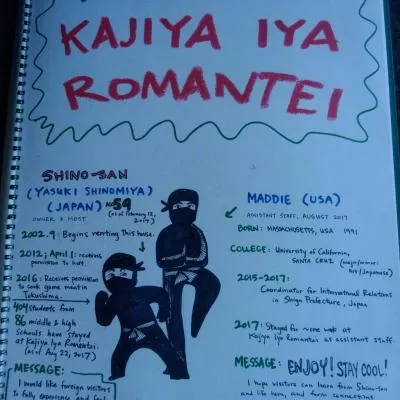 KAJIYA IYA
ROMANTEI
SHINO-SAN
(YASUKI SHINOMIYA)
(JAPAN)
59
OWNER & HOST
2002.9: Begins renting this house.
2012; April 1: receives
permission to host.
2016: Receives permission
to cook game meat in
Tokushima.
404 students from
86 middle & high
schools have stayed
at Kajiya Iya Romantei.
(as of Aug 22, 2017)
MESSAGE:
I would like foreign visitors
to fully experience and feel
MADDIE (USA)
ASSISTANT STAFF, AUGUST 2017
BORN: MASSACHUSETTS, USA 1991
COLLEGE: University of California,
SANTA CRUZ
2015-2017:
Coordinator for International Relations
in Shiga Prefecture, Japan
2017: Stayed for ~one week at
Kajiya Iya Romantei as assistant staff.
MESSAGE: ENJOY! STAY COOL!
I hope visitors can learn from Shino-san
and life here, and form connections